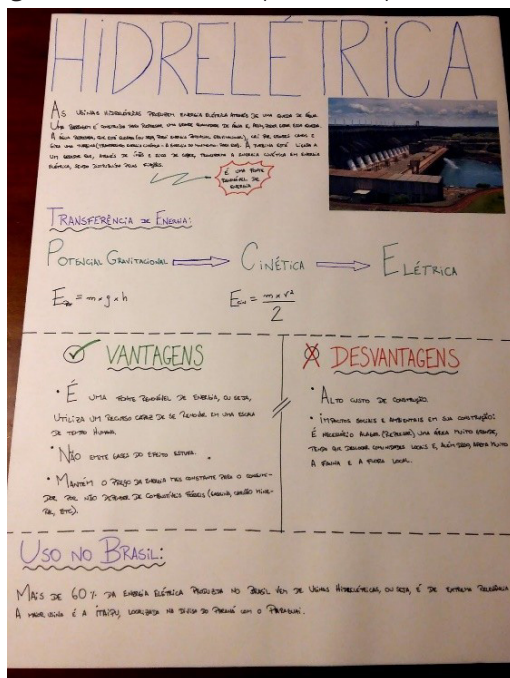 HIDRELÉTRICA
As usinas hidrelétricas produzem energia elétrica através de uma queda de água.
Uma barragem é construída para represar uma grande quantidade de água e, assim,
A água represada, que está
gira uma turbina
um gerador que, através de ímãs e fios de cobre, transforma a energia cinética em energia
elétrica, sendo distribuída pelos fios.
É uma fonte
renovável de
energia
Transferência de Energia:
Potencial Gravitacional ⇒ Cinética ⇒ Elétrica
= m × g × h
= m × v²
2
VANTAGENS
• É uma fonte renovável de energia, ou seja,
utiliza um recurso capaz de se renovar em uma escala
de tempo humana.
• Não emite gases do efeito estufa.
• Mantém o preço da energia mais constante para o consumi-
dor por não depender de combustíveis fósseis (gasolina, carvão mine-
ral, etc).
DESVANTAGENS
• Alto custo de construção.
• Impactos sociais e ambientais em sua construção:
É necessário alagar (represar) uma área muito grande,
tendo que deslocar comunidades locais e, além disso, afeta muito
a fauna e a flora local.
Uso no Brasil:
Mais de 60% da energia elétrica produzida no Brasil vem de usinas hidrelétricas, ou seja, é de extrema relevância
A maior usina é a Itaipu, localizada na divisa do Paraná com o Paraguai.